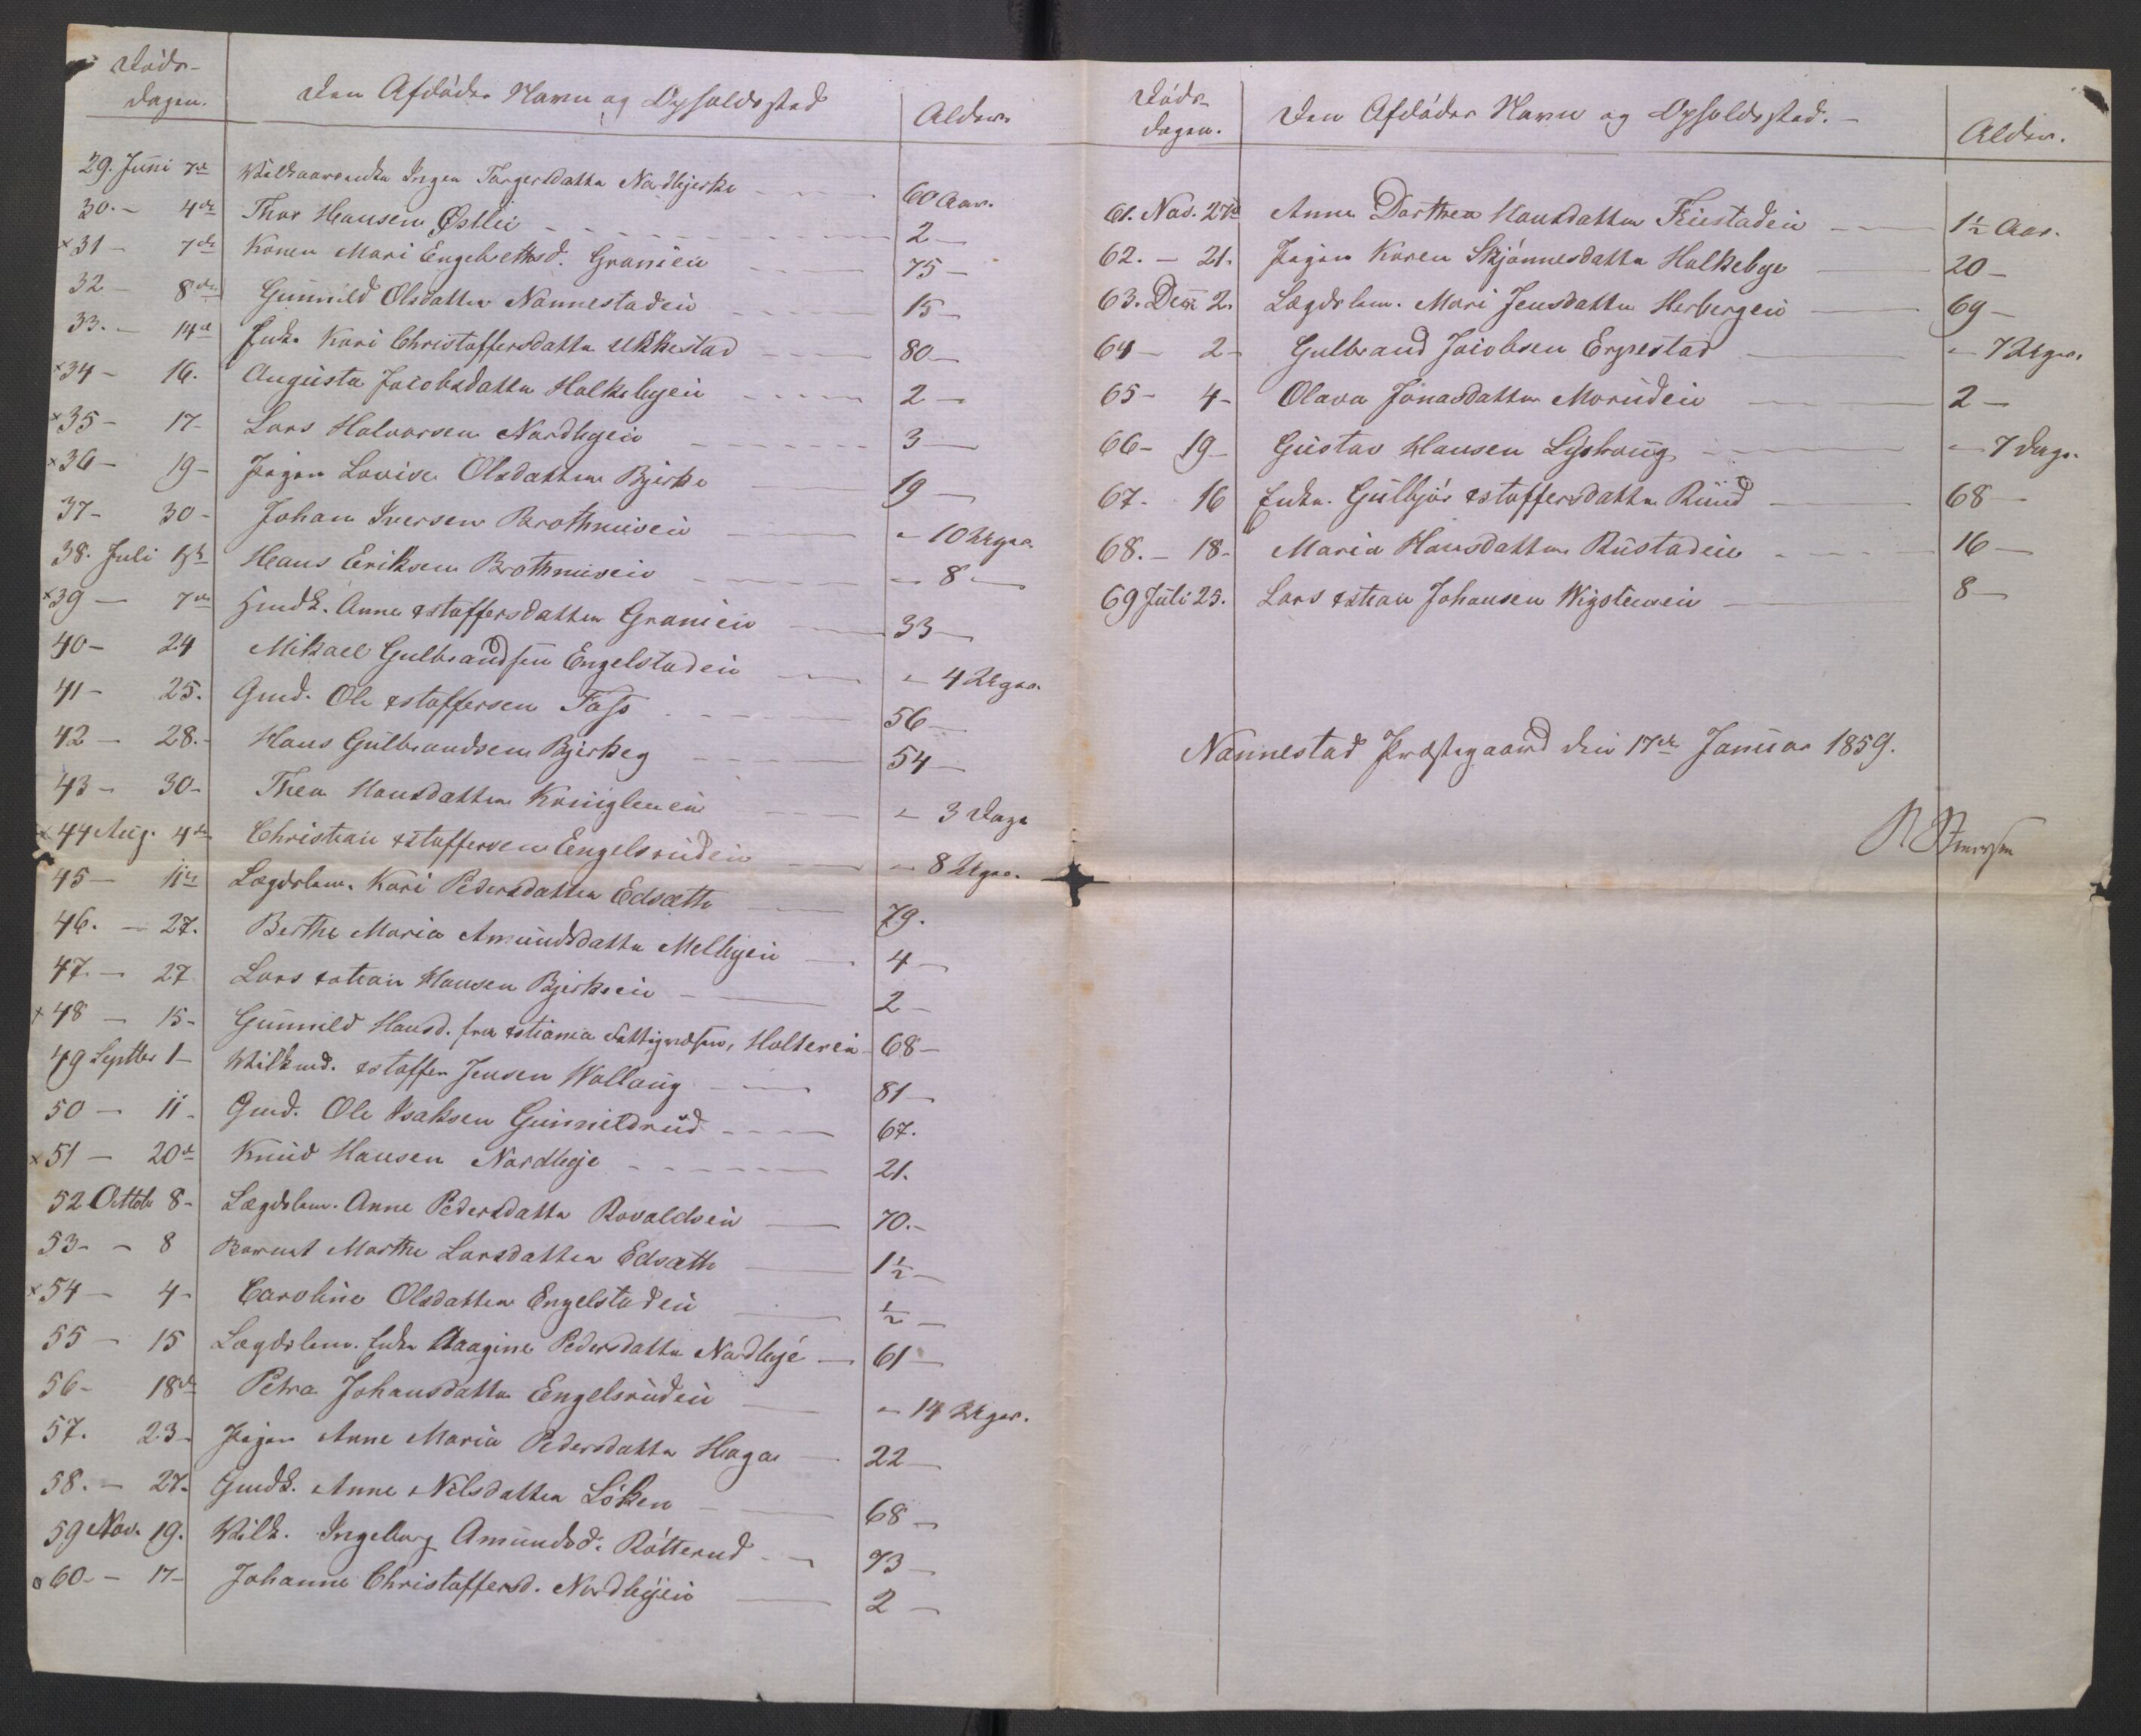 Døds-
dagen.
Den Afdødes Navn og Opholdssted
Alder.
29. Juni 7de Vilkaarsenke Ingen Torgersdatter Nordbjerke 60 Aar.
30. - 4de Thor Hansen Østlie 2 -
x31 - 7de Konen Mari Engebrethsd. Granieie 75 -
32 - 8de Gunnild Olsdatter Nannestadeie 15 -
33. - 14de Enke Kari Christoffersdatter Ukkestad 80 -
x34 - 16. Augusta Jacobsdatter Holkebyeie 2 -
x35 - 17 - Lars Halvorsen Nordbyeie 3 -
x36 - 19 - Pigen Lovise Olsdatter Bjerke 19 -
37 - 30 - Johan Iversen Brothnueie - 10 Uger
38. Juli Hans Eriksen Brothnueie - 8 -
x39 - 7de Huusk. Anne xstoffersdatter Granieie 33 -
40 - 24 Mikael Gulbrandsen Engelstadeie - 4 Uger.
41 - 25. Gmd. Ole xstoffersen 56 -
42 - 28. - Hans Gulbrandsen Bjerkeg 54 -
43 - 30 - Thea Hansdatter - 3 Dage
x44 Aug. 4de Christian xstoffersen Engelsrudeie - 8 Uger.
45 - 11te Lægdslem. Kari Pedersdatter Edsæth 79.
46. - 27. Berthe Maria Amundsdatter Melbyeie 4 -
47. - 27 Lars xstian Hansen Bjerkeeie 2 -
x48 - 15 - Gunnild Hansd. fra xstiania Fattigvæsen, Holtereie 68 -
49 Septbr 1 - Vilkmd. xstoffer Jensen Wollaug 81 -
50 - 11 - Gmd. Ole Isaksen Gunnildrud 67.
x51 - 20de Knud Hansen Nordbye 21.
52 Octob 8 - Lægdslem. Anne Pedersdatter Rovaldseie 70. -
53 - - 8 Barnet Marthe Larsdatter Edsæth 1½ -
x54 - 4 - Caroline Olsdatter Engelstadeie ½ -
55 - 15 Lægdslem. Enke Aagine Pedersdatter Nordbye 61 -
56 - 18de Petra Johansdatter Engelsrudeie - 14 Uger.
57. 23 - Pigen Anne Maria Pedersdatter Haga 22 -
58. - 27. Gmdk. Anne Nilsdatter Løken 68 -
59 Nov. 19. Vilk. Ingeborg Amundsd. Rotterud 73 -
x60. - 17 - Johanne Christoffersd. Nordbyeie 2 -
Døds-
dagen.
Den Afdødes Navn og Opholdssted. -
Alder.
61. Nov. 27de Anne Dorthea Hansdatter 1½ Aar.
62. - 21. Pigen Karen Skjønnesdatter Holkebye 20 -
63. Decr 2. Lægdslem. Mari Jensdatter Herbergeie 69 -
64 - 2 - Gulbrand Jacobsen Erpestad - 7 Uger.
65 - 4 - Olava Jonasdatter Morudeie 2 -
66 - 19 - Gustav Hansen Lyshoug - 7 Dage.
67. 16 Enke. Gulbjør xstoffersdatter Ruud 68 -
68. - 18 - Maria Hansdatter Rustadeie 16 -
69 Juli 25. Lars xstian Johansen Wigsteneie 8 -
Nannestad Præstegaard den 17de Januar 1859.